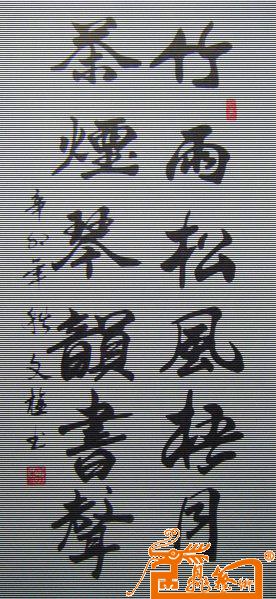 竹雨松風梧月
茶煙琴韻書聲
辛卯年秋文植書